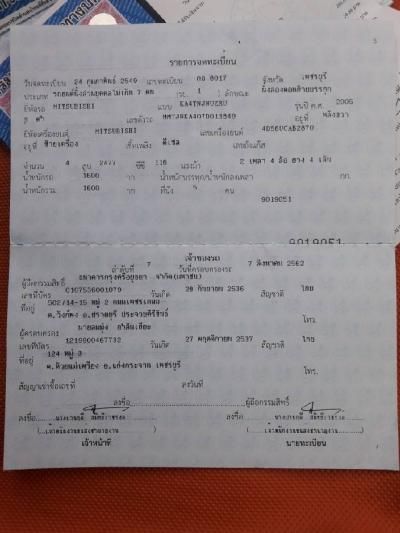 รายการจดทะเบียน
วันจดทะเบียน 24 กุมภาพันธ์ 2549 เลขทะเบียน 6017 จังหวัด เพชรบุรี
ประเภท รถยนต์นั่งส่วนบุคคลไม่เกิน 7 คน (รย. 1 ) ลักษณะ นั่งสองตอนท้ายบรรทุก
ยี่ห้อรถ MITSUBISHI แบบ รุ่นปี ค.ศ. 2005
สี ดำ เลขตัวรถ อยู่ที่
ยี่ห้อเครื่องยนต์ MITSUBISHI เลขเครื่องยนต์ 4D56UCAB2870
อยู่ที่ ซ้ายเครื่อง เชื้อเพลิง ดีเซล เลขถังแก๊ส
จำนวน 4 สูบ 2477 ซีซี 116 แรงม้า 2 เพลา 4 ล้อ ยาง 4 เส้น
น้ำหนักรถ 1600 กก. น้ำหนักบรรทุก/น้ำหนักลงเพลา กก.
น้ำหนักรวม 1600 กก. ที่นั่ง 5 คน
9019051
9019051
เจ้าของรถ
ลำดับที่ 7 วันที่ครอบครองรถ 7 สิงหาคม 2562
ผู้ถือกรรมสิทธิ์ ธนาคารกรุงศรีอยุธยา จำกัด (มหาชน)
เลขที่บัตร C107536001079 วันเกิด 28 กันยายน 2536 สัญชาติ ไทย
ที่อยู่ 502/14-15 หมู่ 2 ถนนเพชรเกษม
ต.วังก์พง อ.ปราณบุรี ประจวบคีรีขันธ์ โทร.
ผู้ครอบครอง
เลขที่บัตร 1219900467732 วันเกิด 27 พฤศจิกายน 2537 สัญชาติ ไทย
ที่อยู่ 124 หมู่ 3
ต.ห้วยแม่เพรียง อ.แก่งกระจาน เพชรบุรี โทร.
สัญญาเช่าซื้อเลขที่ ลงวันที่
ลงชื่อ ผู้ถือกรรมสิทธิ์
ลงชื่อ ลงชื่อ
เจ้าหน้าที่ นายทะเบียน